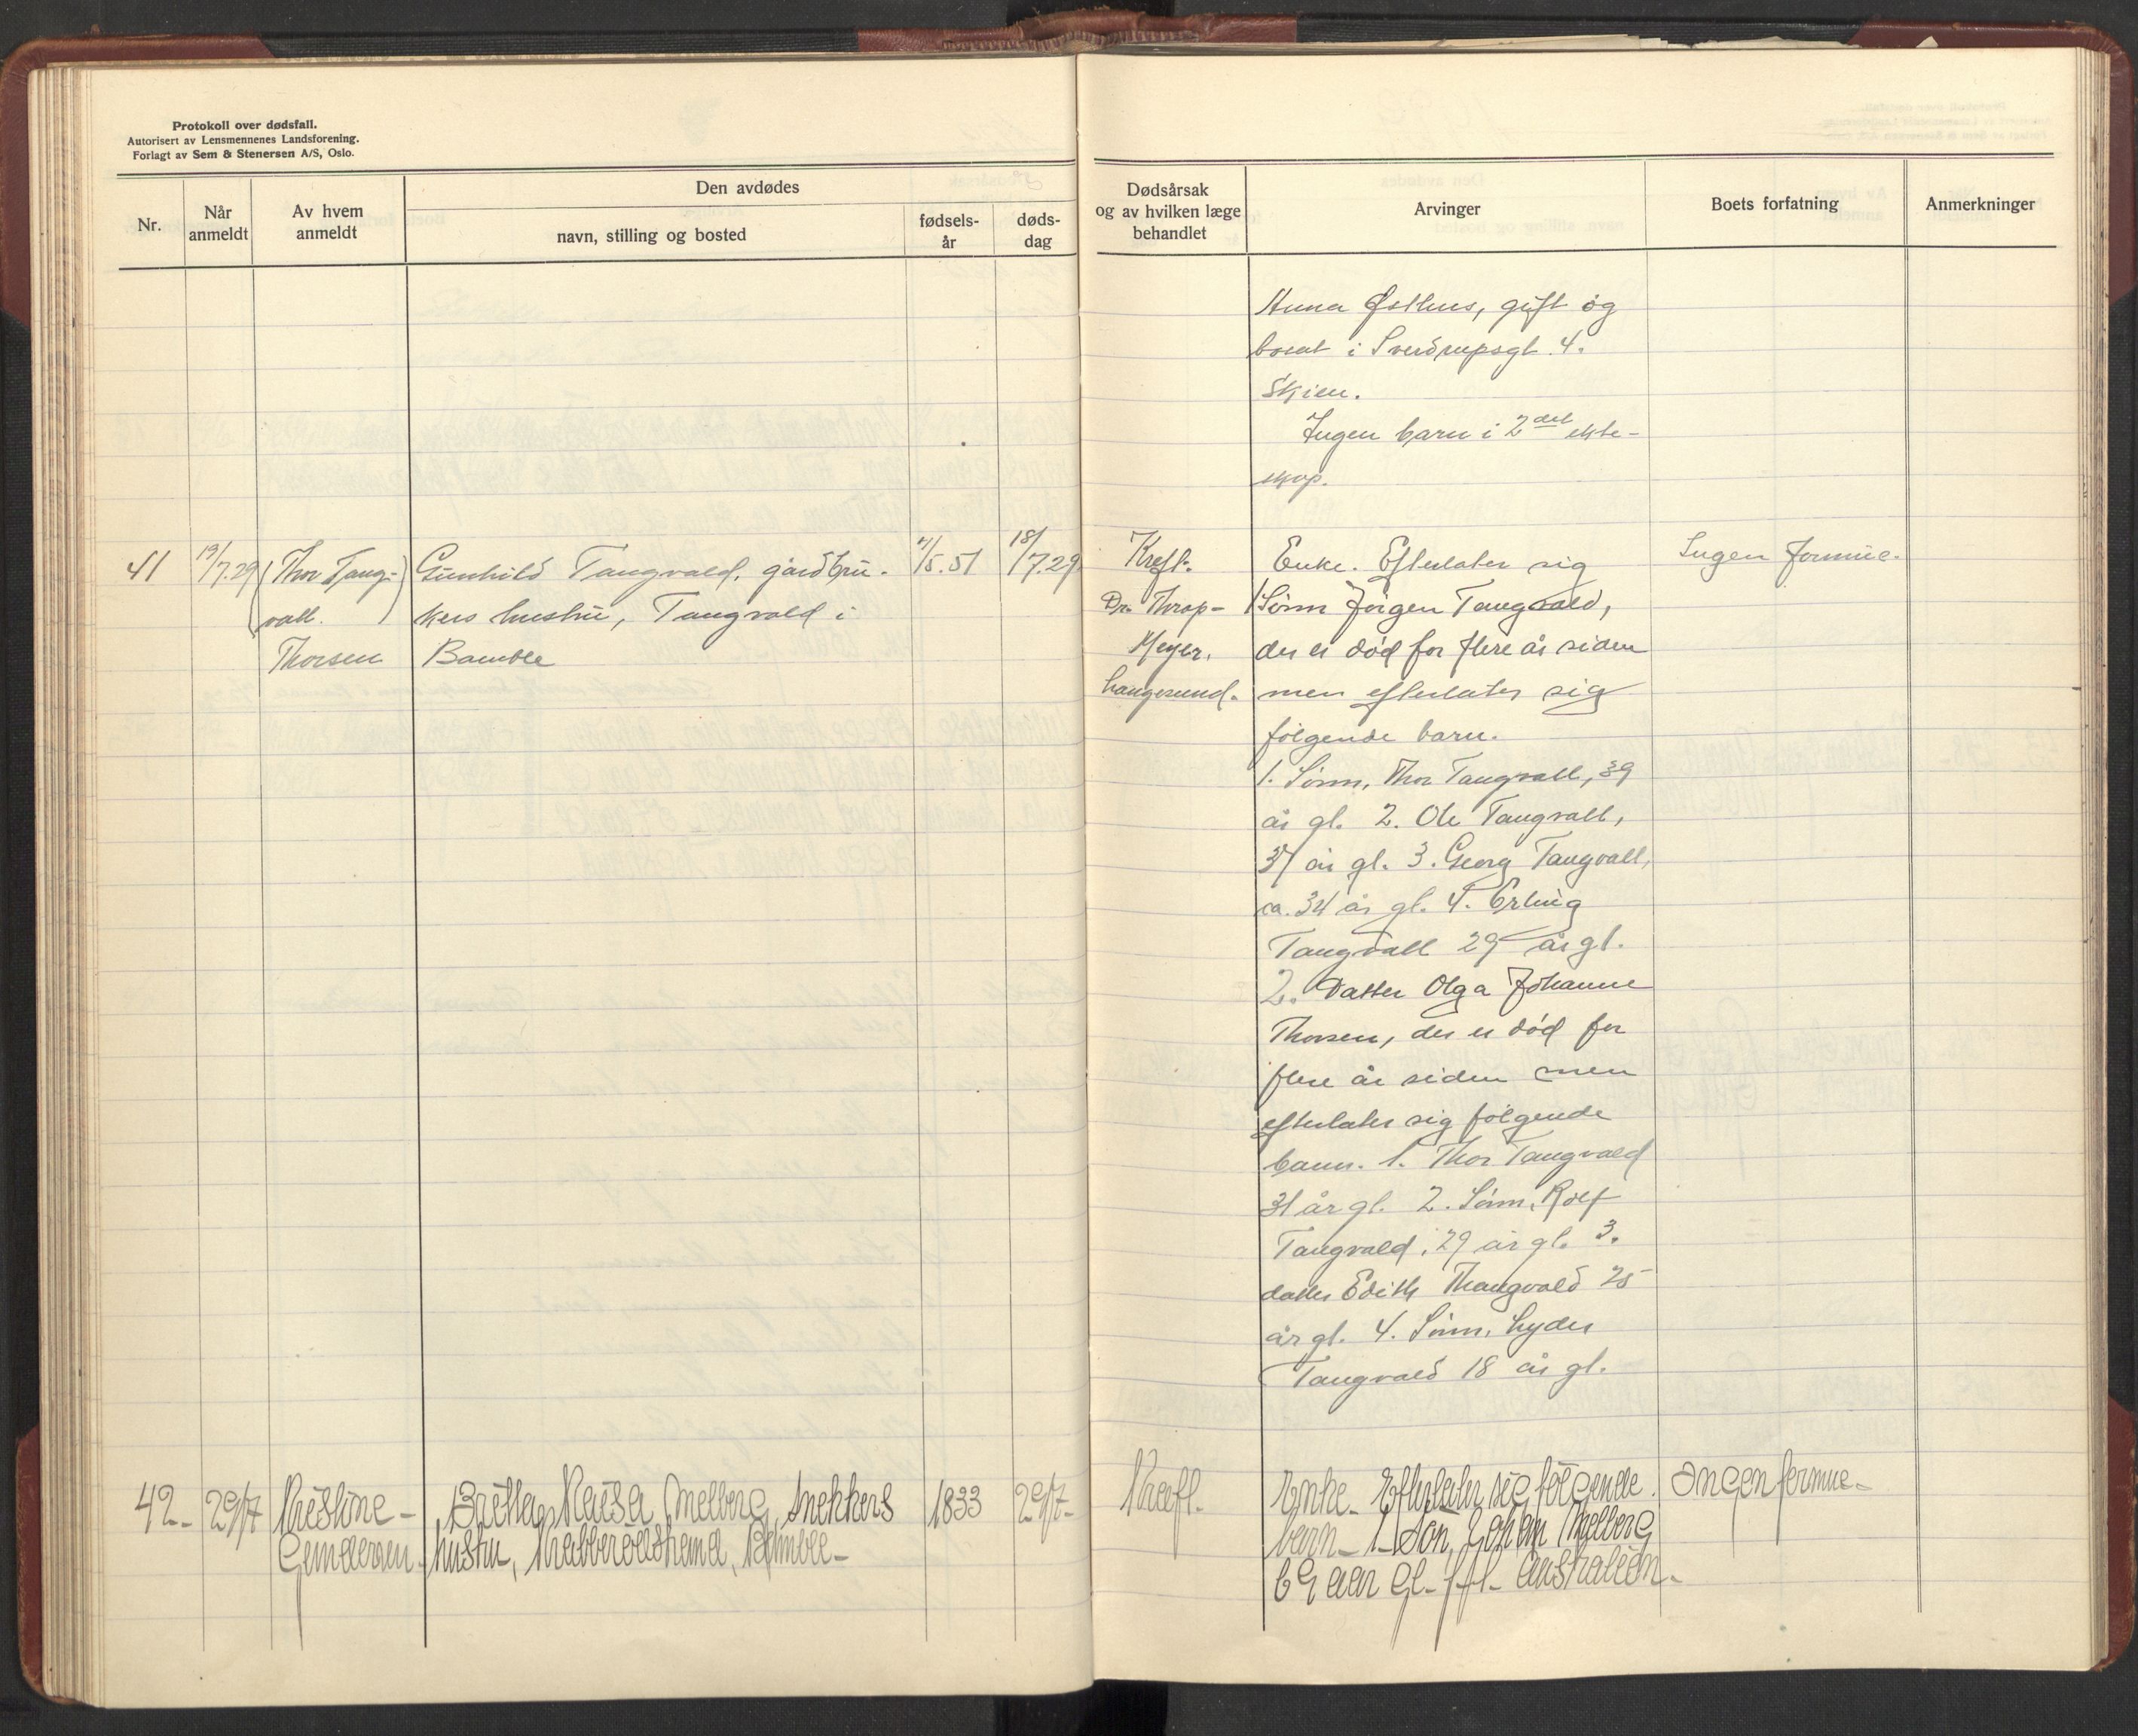 Protokoll over dødsfall.
Autorisert av Lensmennenes Landsforening.
Forlagt av Sem & Stenersen A/S, Oslo.
Nr.
Når anmeldt
Av hvem anmeldt
Den avdødes
navn, stilling og bosted
fødsels-år
døds-dag
Dødsårsak
og av hvilken læge
behandlet
Arvinger
Boets forfatning
Anmerkninger
Anna Østhus, gift og
bosat i Sverdrupsgt. 4.
Skien.
Ingen barn i 2det ekte-
skap.
41
19/7.29
(Thor Tang-
vall.)
Thorsen
Gunhild Tangvald, gårdbru-
kers hustru, Tangvald i
Bamble
/5.51
18/7.29
Kreft.
Dr. Throp-
Meyer.
Langesund.
Enke. Efterlater sig
1 Sønn Jørgen Tangvald,
der er død for flere år siden
men efterlater sig
følgende barn.
1. Sønn, Thor Tangvall, 39
år gl. 2. Ole Tangvall,
37 år gl. 3. Georg Tangvall,
ca. 34 år gl. 4. Erling
Tangvall 29 år gl.
2. Datter Olga Johanne
Thorsen, der er død for
flere år siden men
efterlater sig følgende
barn. 1. Thor Tangvald
31 år gl. 2. Sønn, Rolf
Tangvald, 29 år gl. 3.
datter Edith Thangvald 25
år gl. 4. Sønn, Lyder
Tangvald 18 år gl.
Ingen formue.
42-
29/7
Kristine-
Gundersen
Britha Kaisa Melberg, snekkers
hustru, Krabberødstrand, Bamble-
1833
29/7-
Kraft.
Enke- Efterlater sig følgende
barn- 1- Søn, Johan Melberg
69 aar gl- f.t- Australien-
Ingen formue-